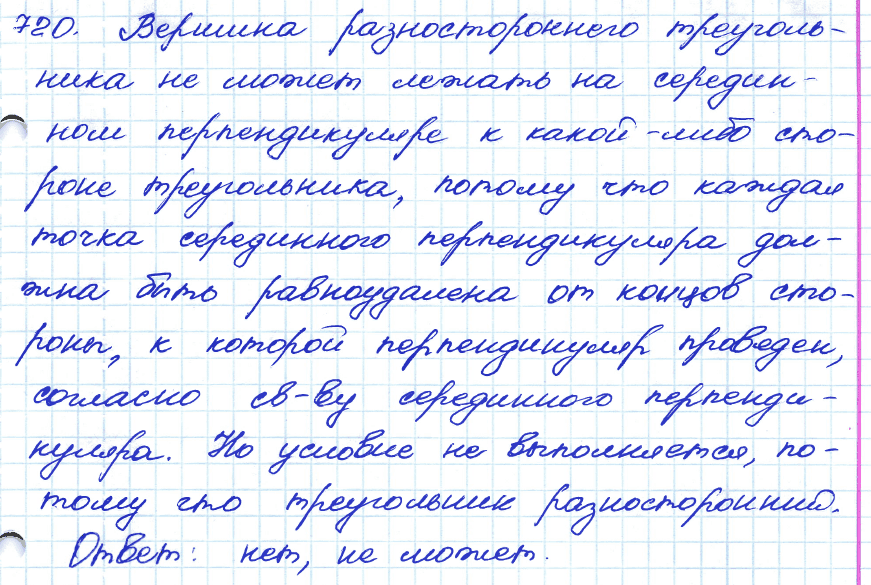 720. Вершина разностороннего треуголь-
ника не может лежать на середин-
ном перпендикуляре к какой-либо сто-
роне треугольника, потому что каждая
точка серединного перпендикуляра дол-
жна быть равноудалена от концов сто-
роны, к которой перпендикуляр проведен,
согласно св-ву серединного перпенди-
куляра. Но условие не выполняется, по-
тому что треугольник разносторонний.
Ответ: нет, не может.